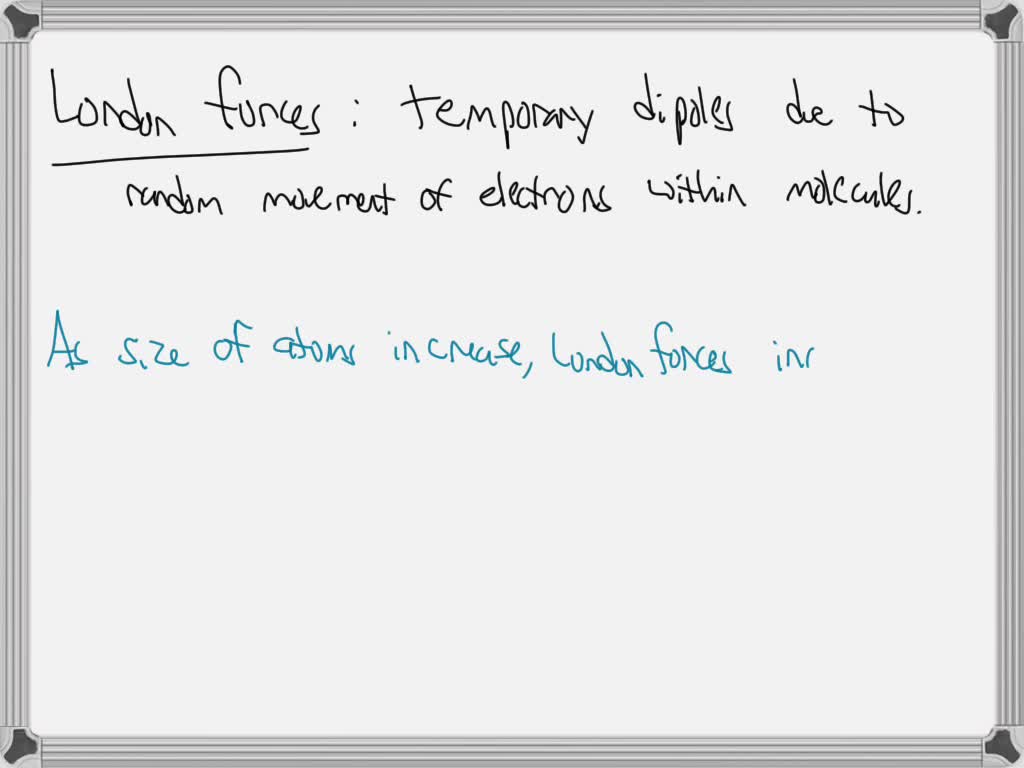 London forces : temporary dipoles due to
random movement of electrons within molecules.
As size of atoms increase, London forces inc